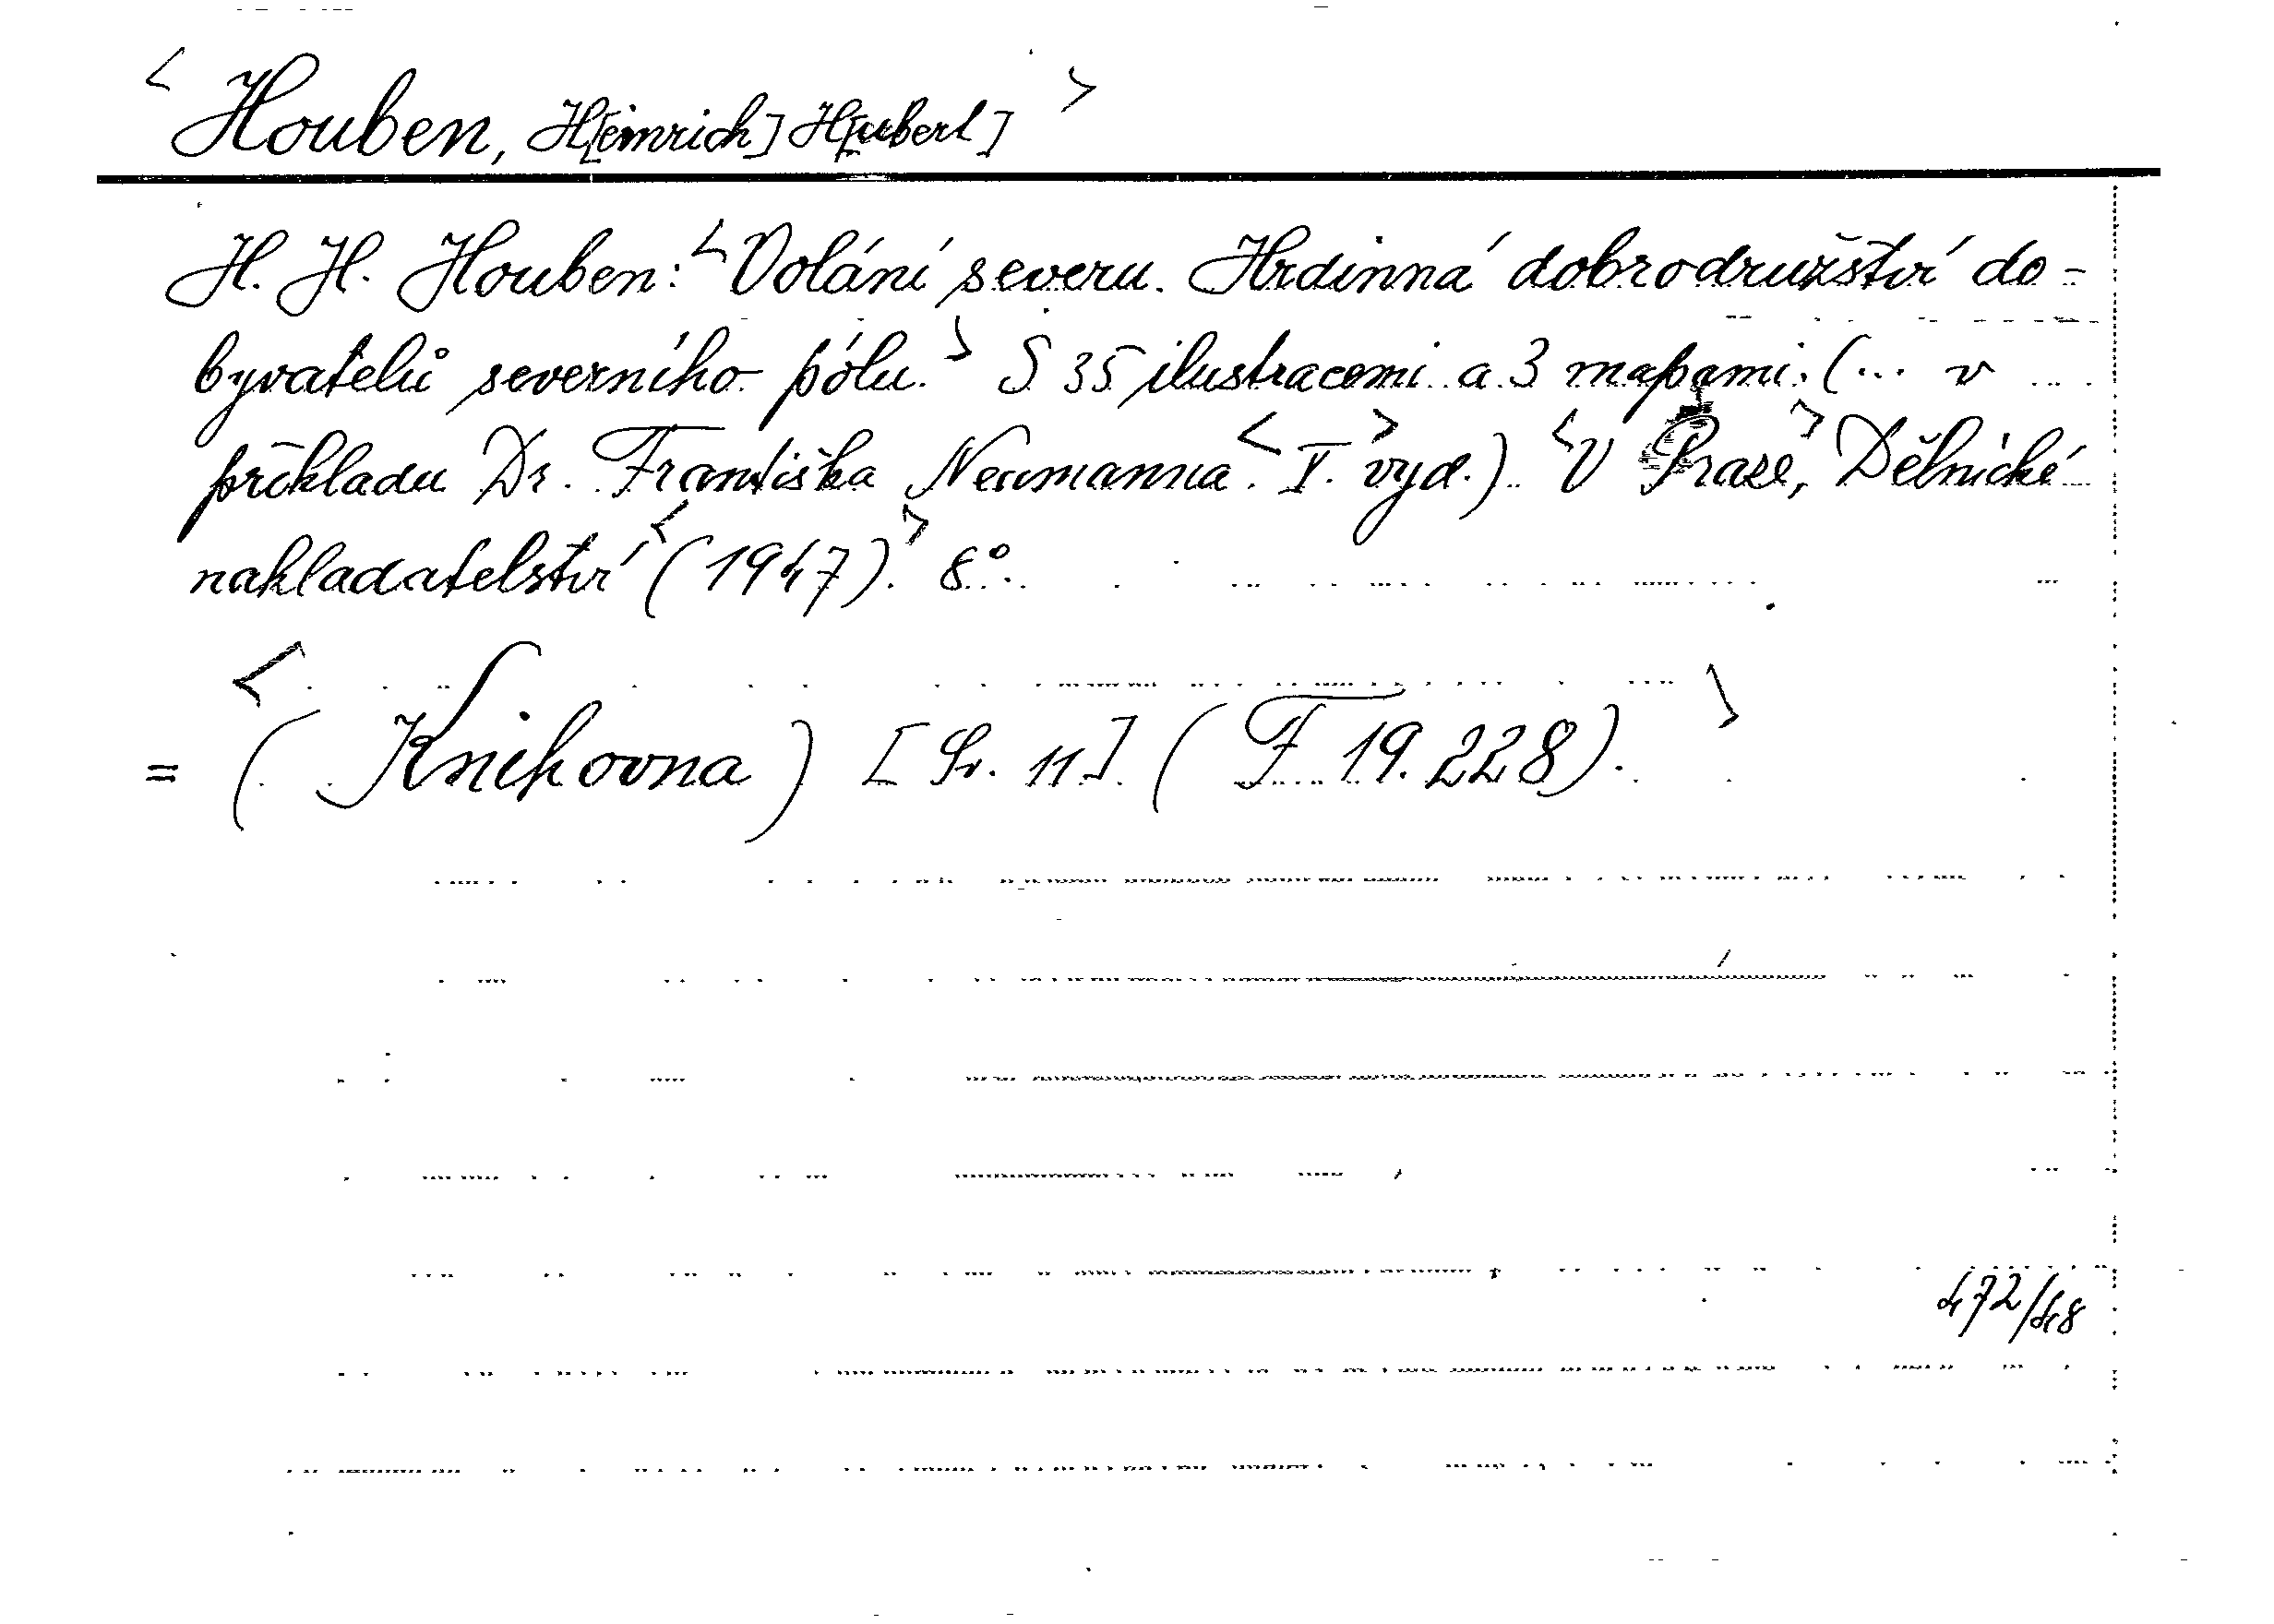 < Houben, H[einrich] H[ubert] >
H. H. Houben: <Volání severu. Hrdinná dobrodružství do-
byvatelů severního pólu.> S 35 ilustracemi a 3 mapami. (... v
překladu Dr. Františka Neumanna. <I. vyd.>) <V Praze,> Dělnické
nakladatelství <(1947).> 8°.
= <( Knihovna ) [Sv. 11] ( F 19.228).>
472/48